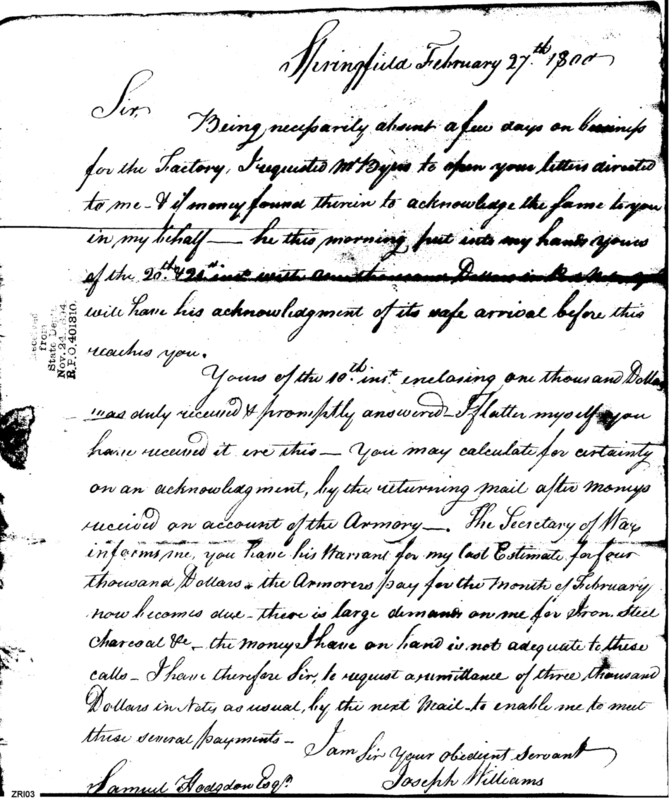 Springfield February 27th 1800
Sir,
Being necessarily absent a few days on business
for the Factory, I requested Mr Byers to open your letters directed
to me - & if money found therein to acknowledge the same to you
in my behalf — he this morning put into my hands yours
of the 20th & 21st inst with one thousand Dollars in
will have his acknowledgment of its safe arrival before this
reaches you.
Yours of the 10th inst. enclosing one thousand Dollars
was duly received & promptly answered - I flatter myself you
have received it ere this — You may calculate for certainty
on an acknowledgment, by the returning mail after moneys
received on account of the Armory —. The Secretary of War
informs me, you have his Warrant for my last Estimate for four
thousand Dollars - the Armorers pay for the Month of February
now becomes due - there is large demands on me for Iron Steel
charcoal &c - the money I have on hand is not adequate to these
calls - I have therefore Sir, to request a remittance of three thousand
Dollars in Notes as usual, by the next Mail - to enable me to meet
these several payments -
I am Sir Your obedient Servant
Joseph Williams
Samuel Hodgdon Esqr.
Received
from
State Dept.
Nov. 24, 1894
R.P.O. 401810.
ZRI03